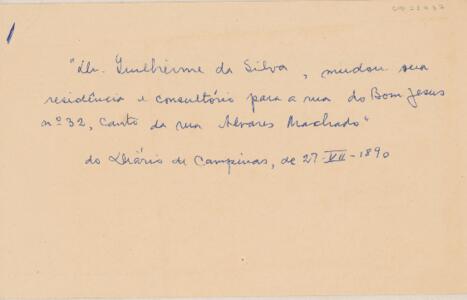 "Dr. Guilherme da Silva, mudou sua
residência e consultório para a rua do Bom Jesus
nº 32, canto da rua Alvares Machado"
do Diário de Campinas, de 27-VII-1890